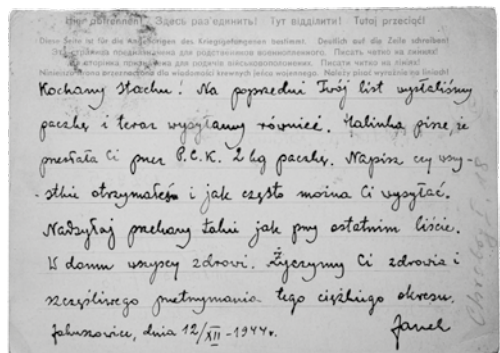 Hier abtrennen! Здесь раз'единить! Тут відділити! Tutaj przeciąć!
Diese Seite ist für die Angehörigen des Kriegsgefangenen bestimmt. Deutlich auf die Zeile schreiben!
Эта страница предназначена для родственников военнопленного. Писать четко на линиях!
сторінка призначена для родичів військовополоненого. Писати чітко на лініях!
Niniejsza strona przeznaczona dla wiadomości krewnych jeńca wojennego. Należy pisać wyraźnie na liniach!
Kochany Stachu! Na poprzedni Twój list wysłaliśmy
paczkę i teraz wysyłamy również. Halinka pisze, że
przesłała Ci przez P.C.K. 2 kg paczkę. Napisz czy wszy-
-stkie otrzymałeś i jak często można Ci wysyłać.
Nadsyłaj przekazy takie jak przy ostatnim liście.
W domu wszyscy zdrowi. Życzymy Ci zdrowia i
szczęśliwego przetrzymania tego ciężkiego okresu.
dnia 12/XII-1944r. Janek